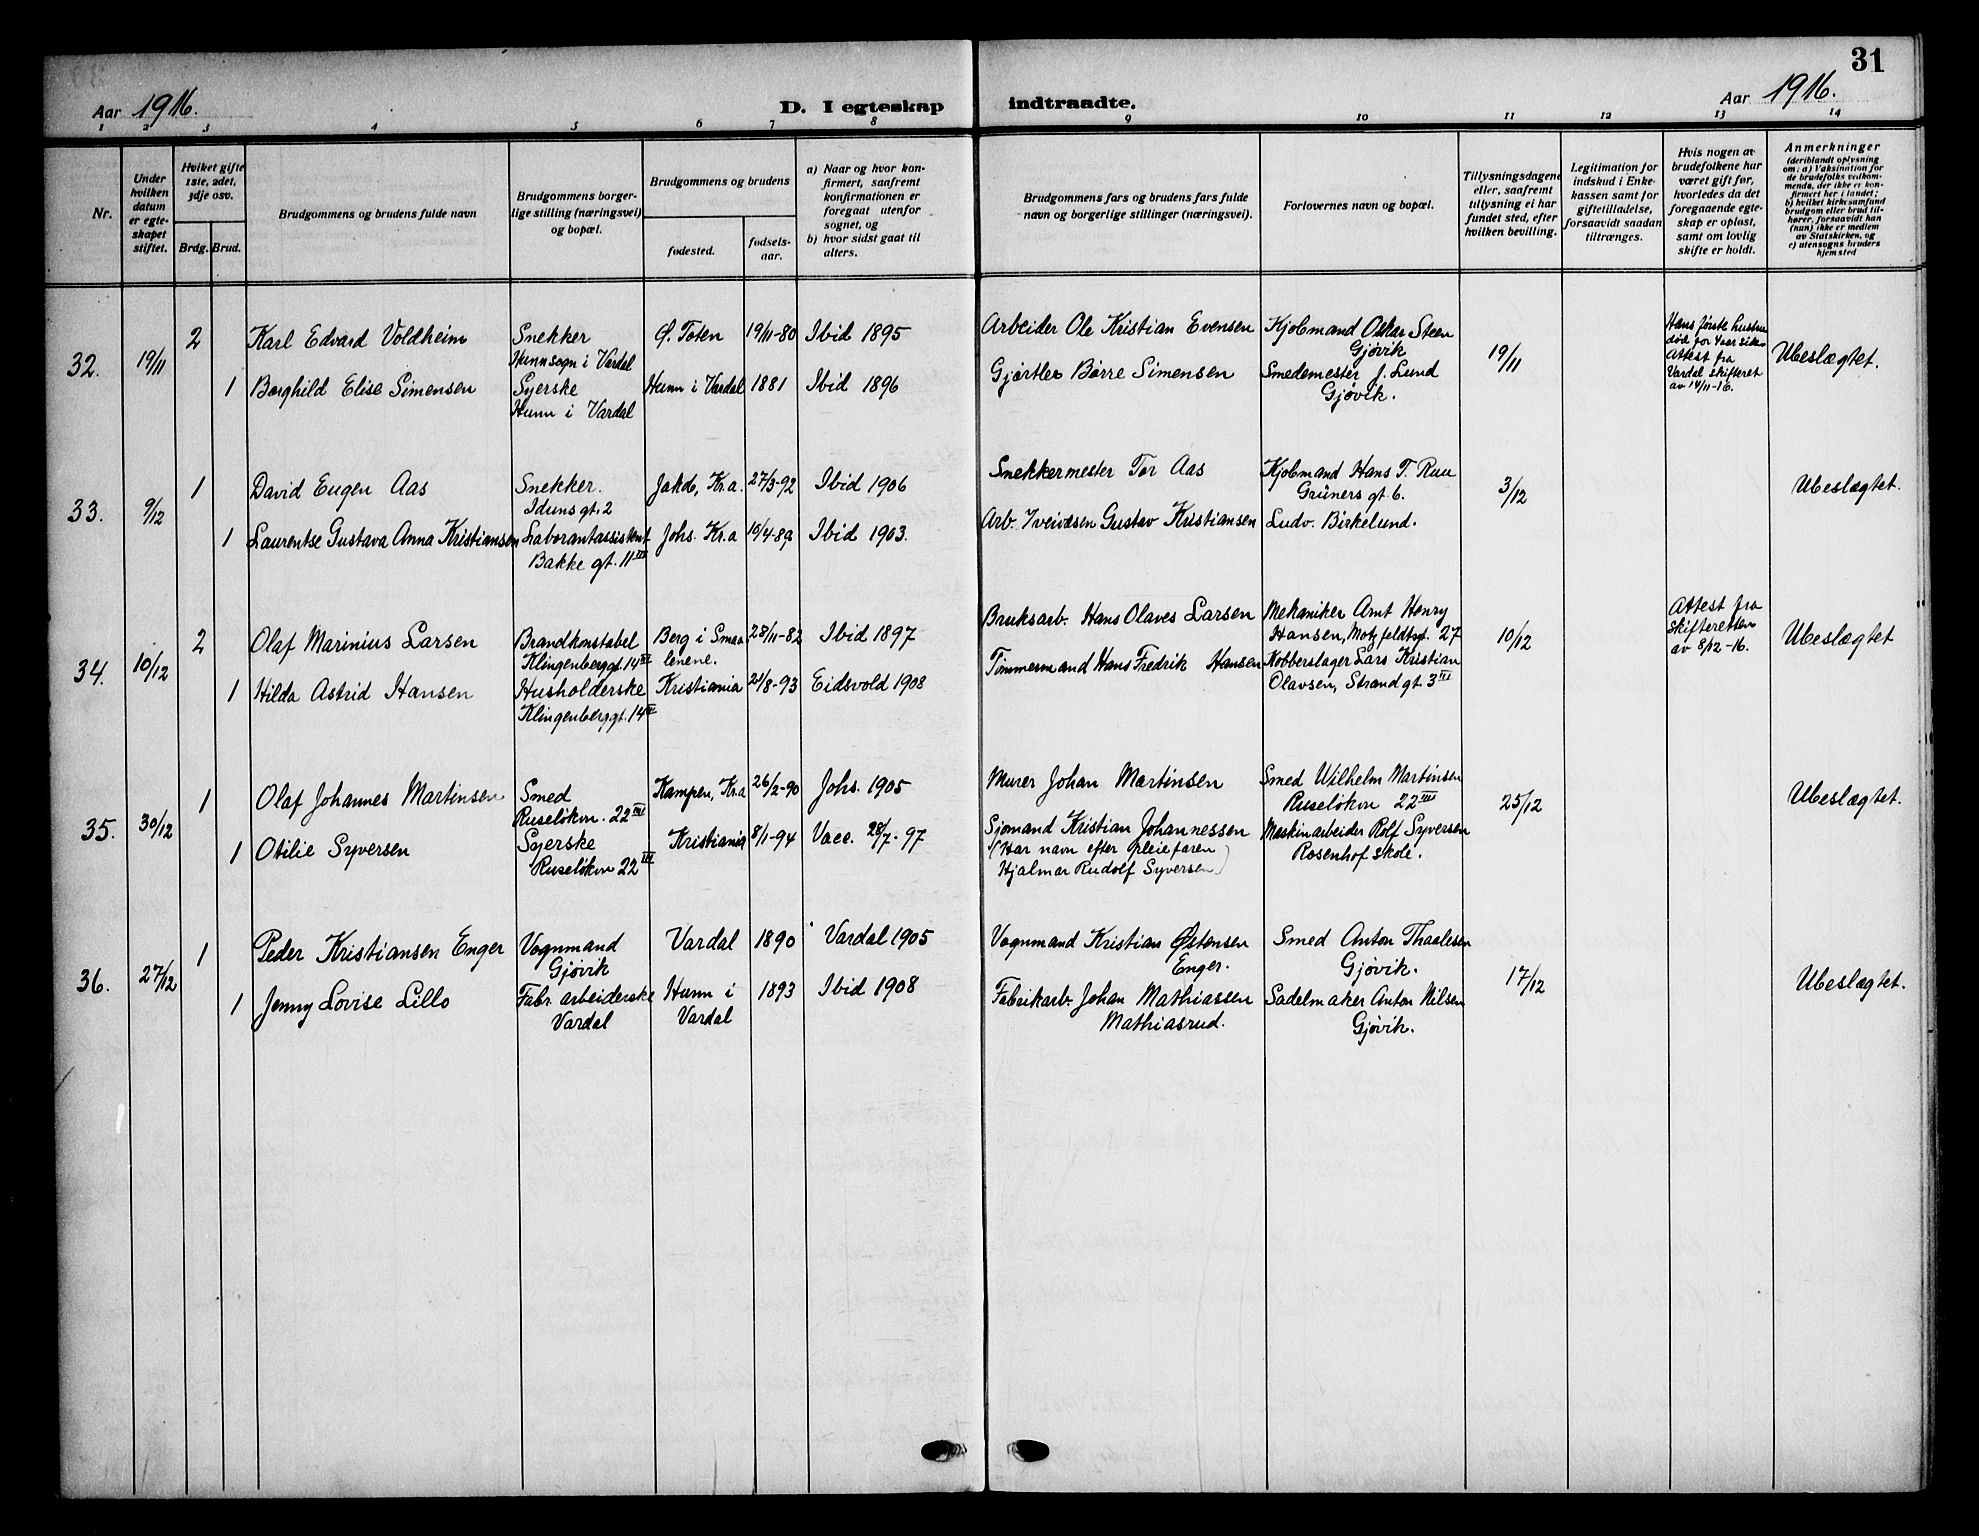 31
Aar 1916.
D. I egteskap indtraadte.
Aar 1916.
1 2 3 4 5 6 7 8 9 10 11 12 13 14
Nr.
Under hvilken datum er egteskapet stiftet.
Hvilket gifte 1ste, 2det, 3dje osv.
Brdg. Brud.
Brudgommens og brudens fulde navn
Brudgommens borgerlige stilling (næringsvei) og bopæl.
Brudgommens og brudens
fødested.
fødselsaar.
a) Naar og hvor konfirmert, saafremt konfirmationen er foregaat utenfor sognet, og
b) hvor sidst gaat til alters.
Brudgommens fars og brudens fars fulde navn og borgerlige stillinger (næringsvei).
Forlovernes navn og bopæl.
Tillysningsdagene eller, saafremt tillysning ei har fundet sted, efter hvilken bevilling.
Legitimation for indskud i Enkekassen samt for giftetilladelse, forsaavidt saadan tiltrænges.
Hvis nogen av brudefolkene har været gift før, hvorledes da det foregaaende egteskap er opløst, samt om lovlig skifte er holdt.
Anmerkninger
(deriblandt oplysning om: a) Vaksination for de brudefolks vedkommende, der ikke er konfirmert her i landet;
b) hvilket kirkesamfund brudgom eller brud tilhører, forsaavidt han (hun) ikke er medlem av Statskirken, og
c) utensogns bruders hjemsted
32. 19/11
2 Karl Edvard Voldheim
Snekker
Hunn sogn i Vardal
Ø. Toten 19/11-80 Ibid 1895
Arbeider Ole Kristian Evensen
Kjøbmand Oskar Steen
Gjøvik
19/11
Hans første hustru
død for 4 aar siden
Attest fra
Vardal skifteret
av 14/11-16.
Ubeslægtet.
1 Borghild Elise Simensen
Syerske
Hunn i Vardal
Hunn i Vardal 1881 Ibid 1896
Gjørtler Børre Simensen
Smedemester J. Lund
Gjøvik.
33. 9/12
1 David Eugen Aas
Snekker.
Iduns gt. 2
Jakob, Kr.a. 27/3-92 Ibid 1906
Snekkermester Tor Aas
Kjøbmand Hans T. Ruu
Grüners gt. 6.
3/12
Ubeslægtet.
1 Laurentse Gustava Anna Kristiansen
Laborantassistent
Bakke gt. 11 III
Johs. Kr.a 10/4-89 Ibid 1903.
Arb. Gustav Kristiansen
Ludv. Birkelund.
34. 10/12
2 Olaf Marinius Larsen
Brandkonstabel
Klingenberggt. 14 III
Berg i Smaa
lenene.
28/11-82 Ibid 1897
Bruksarb. Hans Olaves Larsen
Mekaniker Arnt Henry
Hansen, Motzfeldtsgt. 27
10/12
Attest fra
Skifteretten
av 8/12-16.
Ubeslægtet
1 Hilda Astrid Hansen
Husholderske
Klingenberggt. 14 III
Kristiania 21/8-93 Eidsvold 1908
Tømmermand Hans Fredrik Hansen
Kobberslager Lars Kristian
Olavsen, Strand gt. 3 III
35. 30/12
1 Olaf Johannes Martinsen
Smed
Ruseløkvn. 22 III
Kampen, Kr.a 26/2-90 Johs. 1905
Murer Johan Martinsen
Smed Wilhelm Martinsen
Ruseløkvn 22 III
25/12
Ubeslægtet.
1 Otilie Syversen
Syerske
Ruseløkvn 22 III
Kristiania 8/1-94 Vacc. 28/7-97
Sjømand Kristian Johannessen
(Har navn efter pleiefaren
Hjalmar Rudolf Syversen)
Maskinarbeider Rolf Syversen
Rosenhof skole.
36. 27/12
1 Peder Kristiansen Enger
Vognmand
Gjøvik
Vardal 1890 Vardal 1905
Vognmand Kristian Østensen
Enger.
Smed Anton Thaalesen
Gjøvik.
17/12
Ubeslægtet.
1 Jenny Lovise Lillo
Fabr. arbeiderske
Vardal
Hunn i
Vardal
1893 Ibid 1908
Fabrikarb. Johan Mathiassen
Mathiasrud.
Sadelmaker Anton Nilsen
Gjøvik.